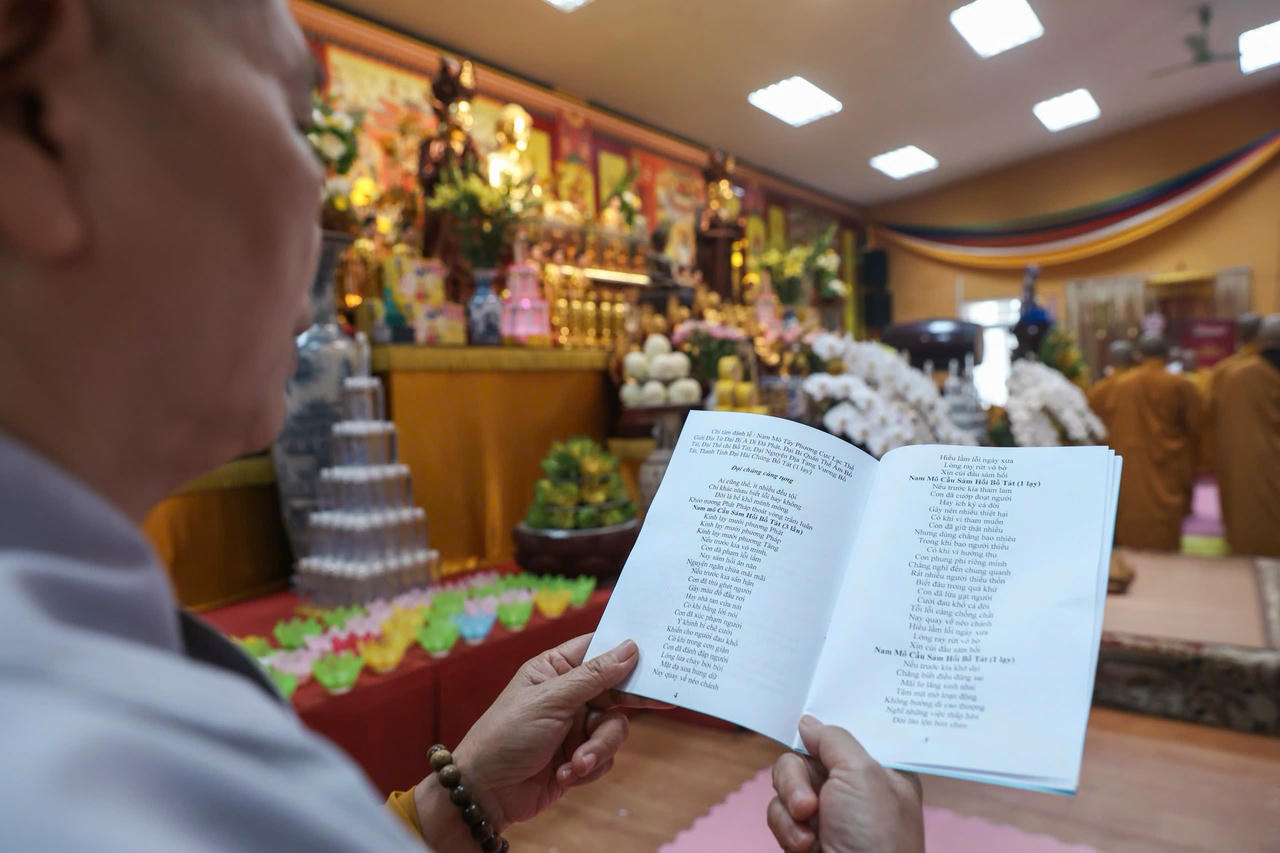 Chí tâm đảnh lễ : Nam Mô Tây Phương Cực Lạc Thế
Giới Đại Từ Đại Bi A Di Đà Phật, Đại Bi Quán Thế Âm Bồ
Tát, Đại Thế chí Bồ Tát, Đại Nguyện Địa Tạng Vương Bồ
Tát, Thanh Tịnh Đại Hải Chúng Bồ Tát (1 lạy)
Đại chúng cùng tụng
Ai cũng thế, ít nhiều đều tội
Chỉ khác nhau biết lỗi hay không
Đời là bể khổ mênh mông
Khéo nương Phật Pháp thoát vòng trầm luân
Nam mô Cầu Sám Hối Bồ Tát (3 lần)
Kính lạy mười phương Phật
Kính lạy mười phương Pháp
Kính lạy mười phương Tăng
Nếu trước kia vô minh,
Con đã phạm lỗi lầm
Nay sám hối ăn năn
Nguyện ngăn chừa mãi mãi
Nếu trước kia sân hận
Con đã thù ghét người
Gây máu đổ đầu rơi
Hay nhà tan cửa nát
Có khi bằng lời nói
Con đã xúc phạm người
Ý khinh bỉ chê cười
Khiến cho người đau khổ
Có khi trong cơn giận
Con đã đánh đập người
Lòng lửa cháy bời bời
Mặt dạ xoa hung dữ
Nay quay về nẻo chánh
4
Hiểu lầm lỗi ngày xưa
Lòng ray rứt vô bờ
Xin cúi đầu sám hối
Nam Mô Cầu Sám Hối Bồ Tát (1 lạy)
Nếu trước kia tham lam
Con đã cướp đoạt người
Hay ích kỷ cả đời
Gây nên nhiều thiệt hại
Có khi vì tham muốn
Con đã giữ thật nhiều
Nhưng dùng chẳng bao nhiêu
Trong khi bao người thiếu
Có khi vì hưởng thụ
Con phung phí riêng mình
Chẳng nghĩ đến chung quanh
Rất nhiều người thiếu thốn
Biết đâu trong quá khứ
Con đã lừa gạt người
Cười đau khổ cả đời
Tội lỗi càng chồng chất
Nay quay về nẻo chánh
Hiểu lầm lỗi ngày xưa
Lòng ray rứt vô bờ
Xin cúi đầu sám hối
Nam Mô Cầu Sám Hối Bồ Tát (1 lạy)
Nếu trước kia khờ dại
Chẳng biết điều đúng sai
Mãi lo lắng sinh nhai
Tâm mịt mờ loạn động
Không hướng đi cao thượng
Nghĩ những việc thấp hèn
5